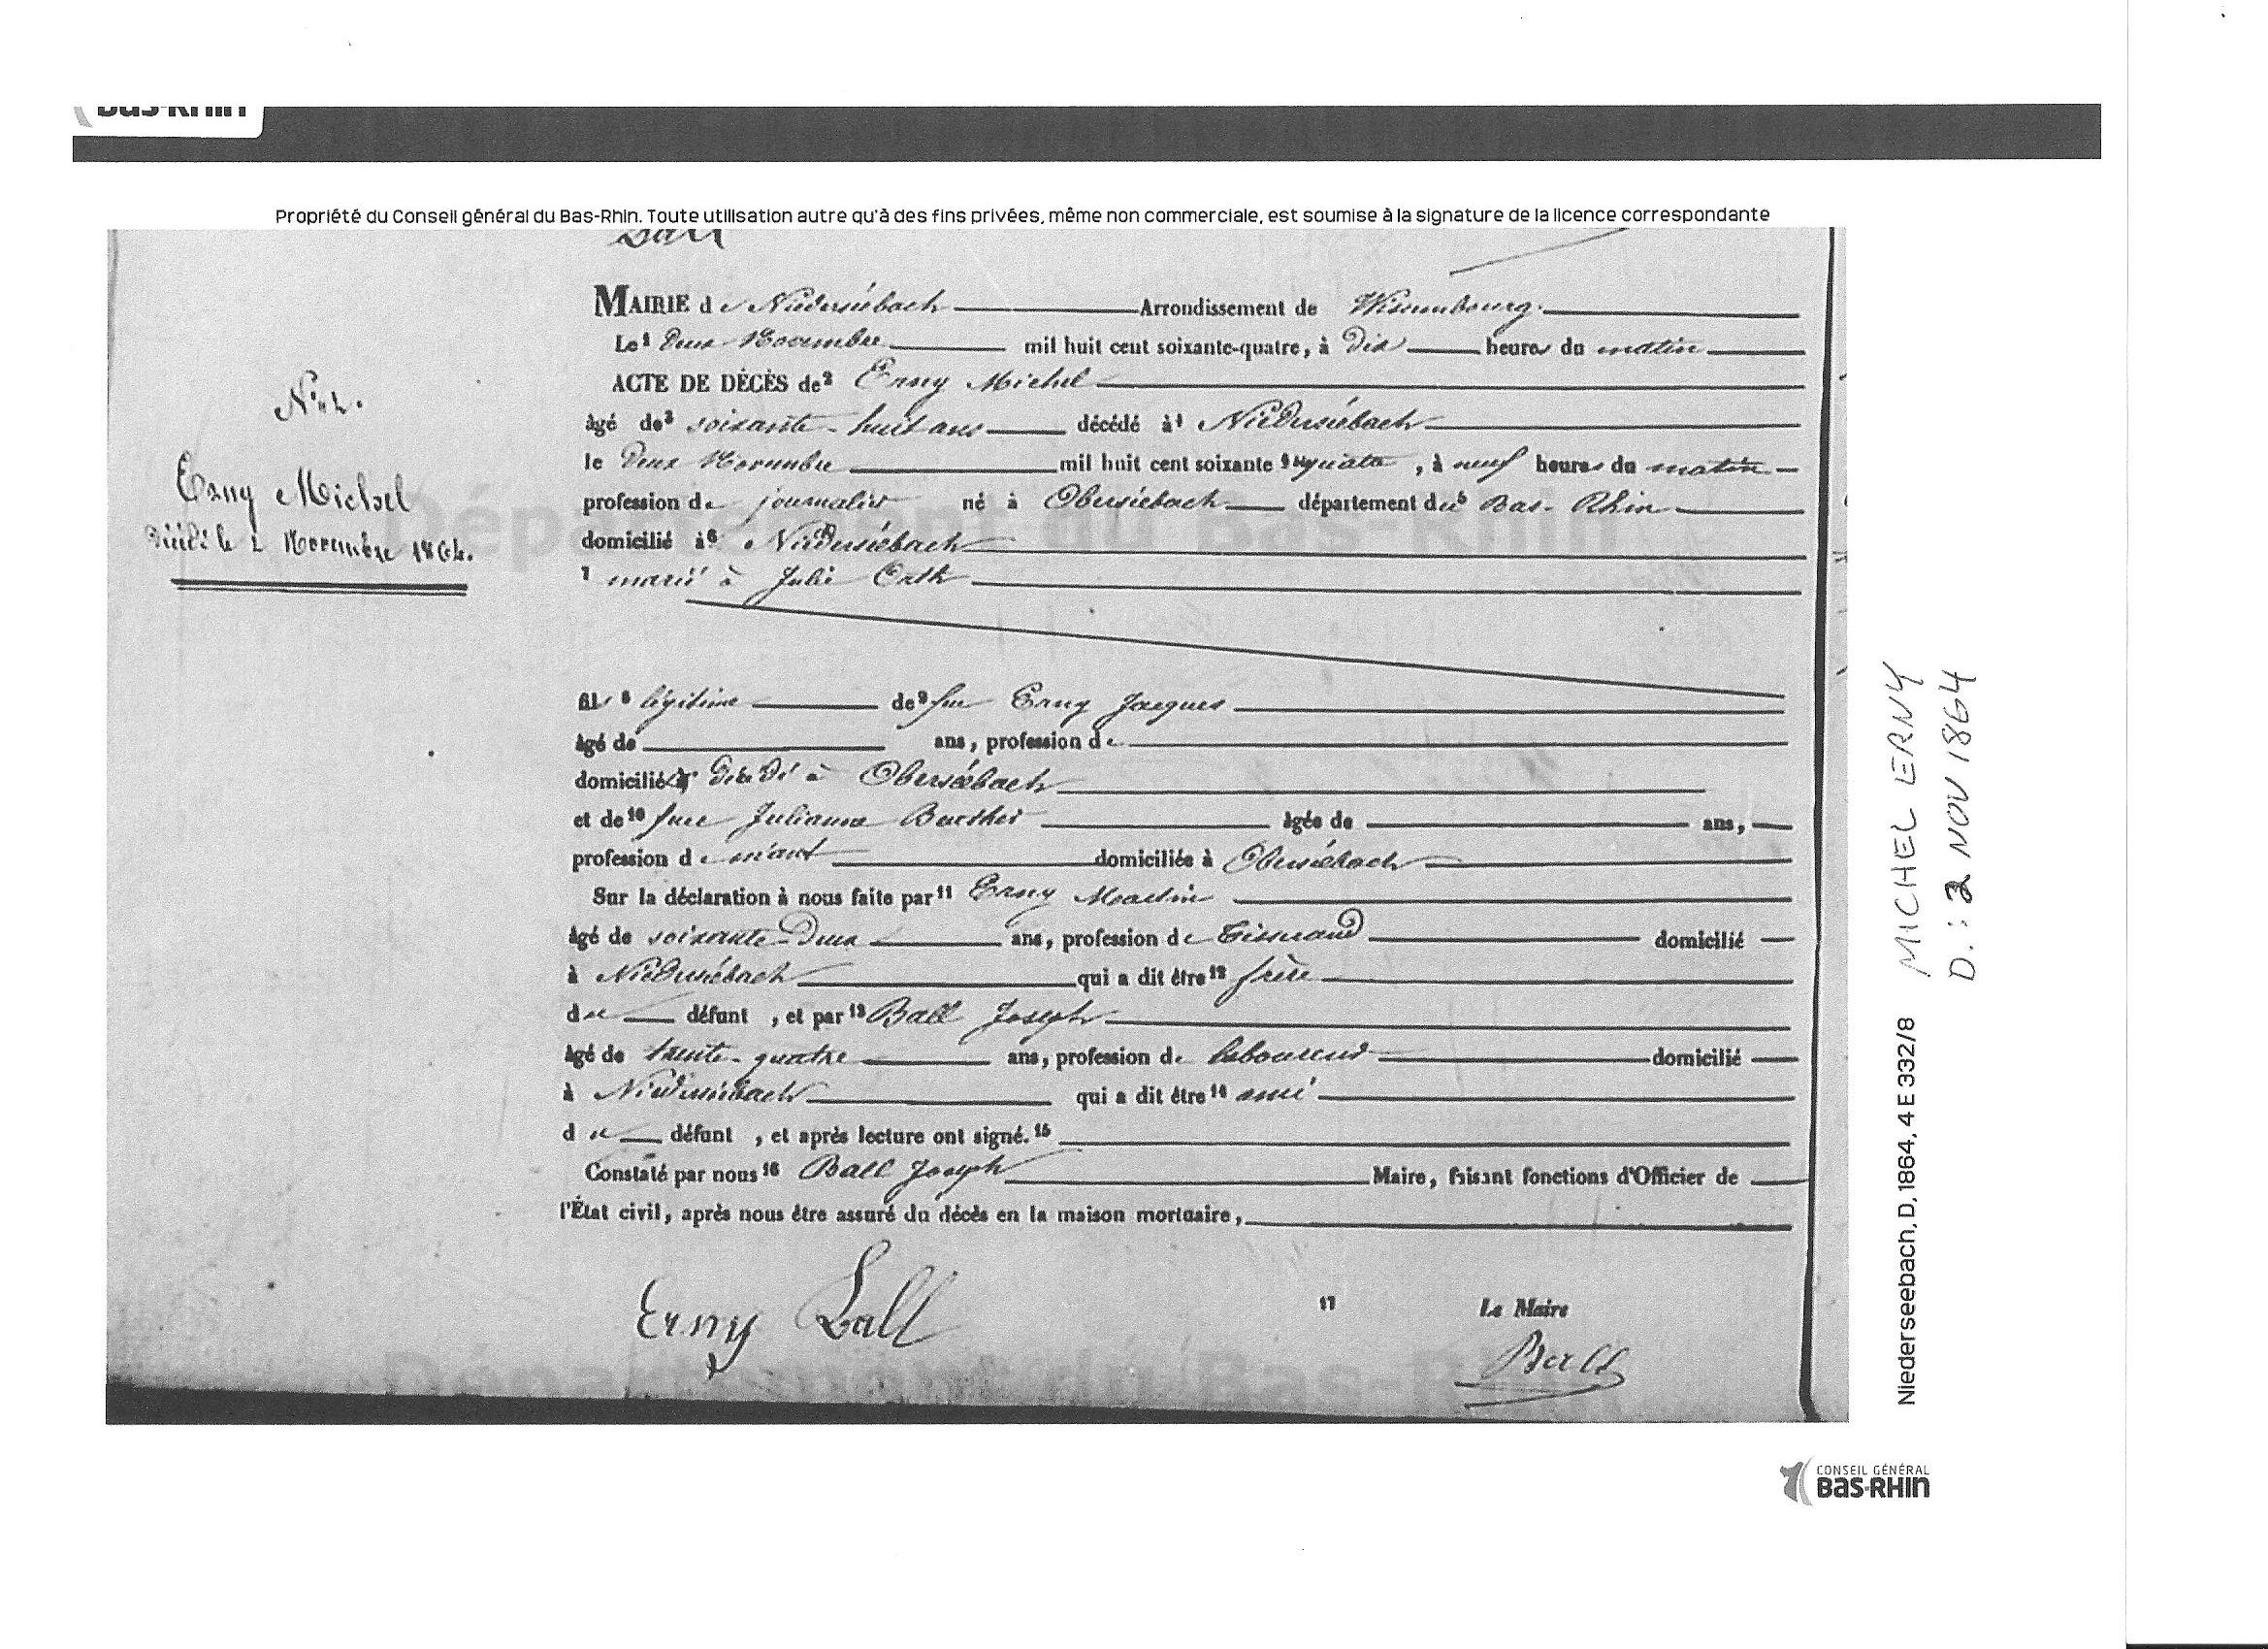 Bas-Rhin
Propriété du Conseil général du Bas-Rhin. Toute utilisation autre qu'à des fins privées, même non commerciale, est soumise à la signature de la licence correspondante
Ball
MAIRIE de Niederseebach Arrondissement de Wissembourg.
Le¹ deux Novembre mil huit cent soixante-quatre, à dix heures du matin
ACTE DE DÉCÈS de² Erny Michel
âgé de³ soixante-huit ans décédé à⁴ Niederseebach
le deux Novembre mil huit cent soixante quatre, à neuf heures du matin
profession de journalier né à Oberseebach département du⁵ Bas-Rhin
domicilié à⁶ Niederseebach
⁷ marié à Julie Orth
fils⁸ légitime de⁹ feu Erny Jacques
âgé de ans, profession de
domicilié à décédé à Oberseebach
et de¹⁰ feue Juliana âgée de ans,
profession de néant domiciliée à Oberseebach
Sur la déclaration à nous faite par¹¹ Erny Martin
âgé de soixante-deux ans, profession de Tisserand domicilié
à Niederseebach qui a dit être¹² frère
du défunt, et par¹³ Ball Joseph
âgé de trente-quatre ans, profession de laboureur domicilié
à Niederseebach qui a dit être¹⁴ ami
du défunt, et après lecture ont signé.¹⁵
Constaté par nous¹⁶ Ball Joseph Maire, faisant fonctions d'Officier de
l'État civil, après nous être assuré du décès en la maison mortuaire,
Erny Ball
17 Le Maire
Ball
Erny Michel
Décédé le 2 Novembre 1864.
Département du Bas-Rhin
Département du Bas-Rhin
Niederseebach, D, 1864, 4 E 332/8
MICHEL ERNY
D.: 2 NOV 1864
CONSEIL GÉNÉRAL
BAS-RHIN